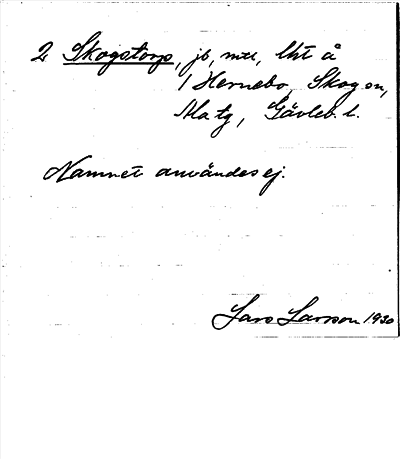 2 Skogstorp, jb, mtl, lht å
1 Hernebo, Skog sn,
Ala tg, Gävleb. l.
Namnet användes ej.
Lars Larsson 1930